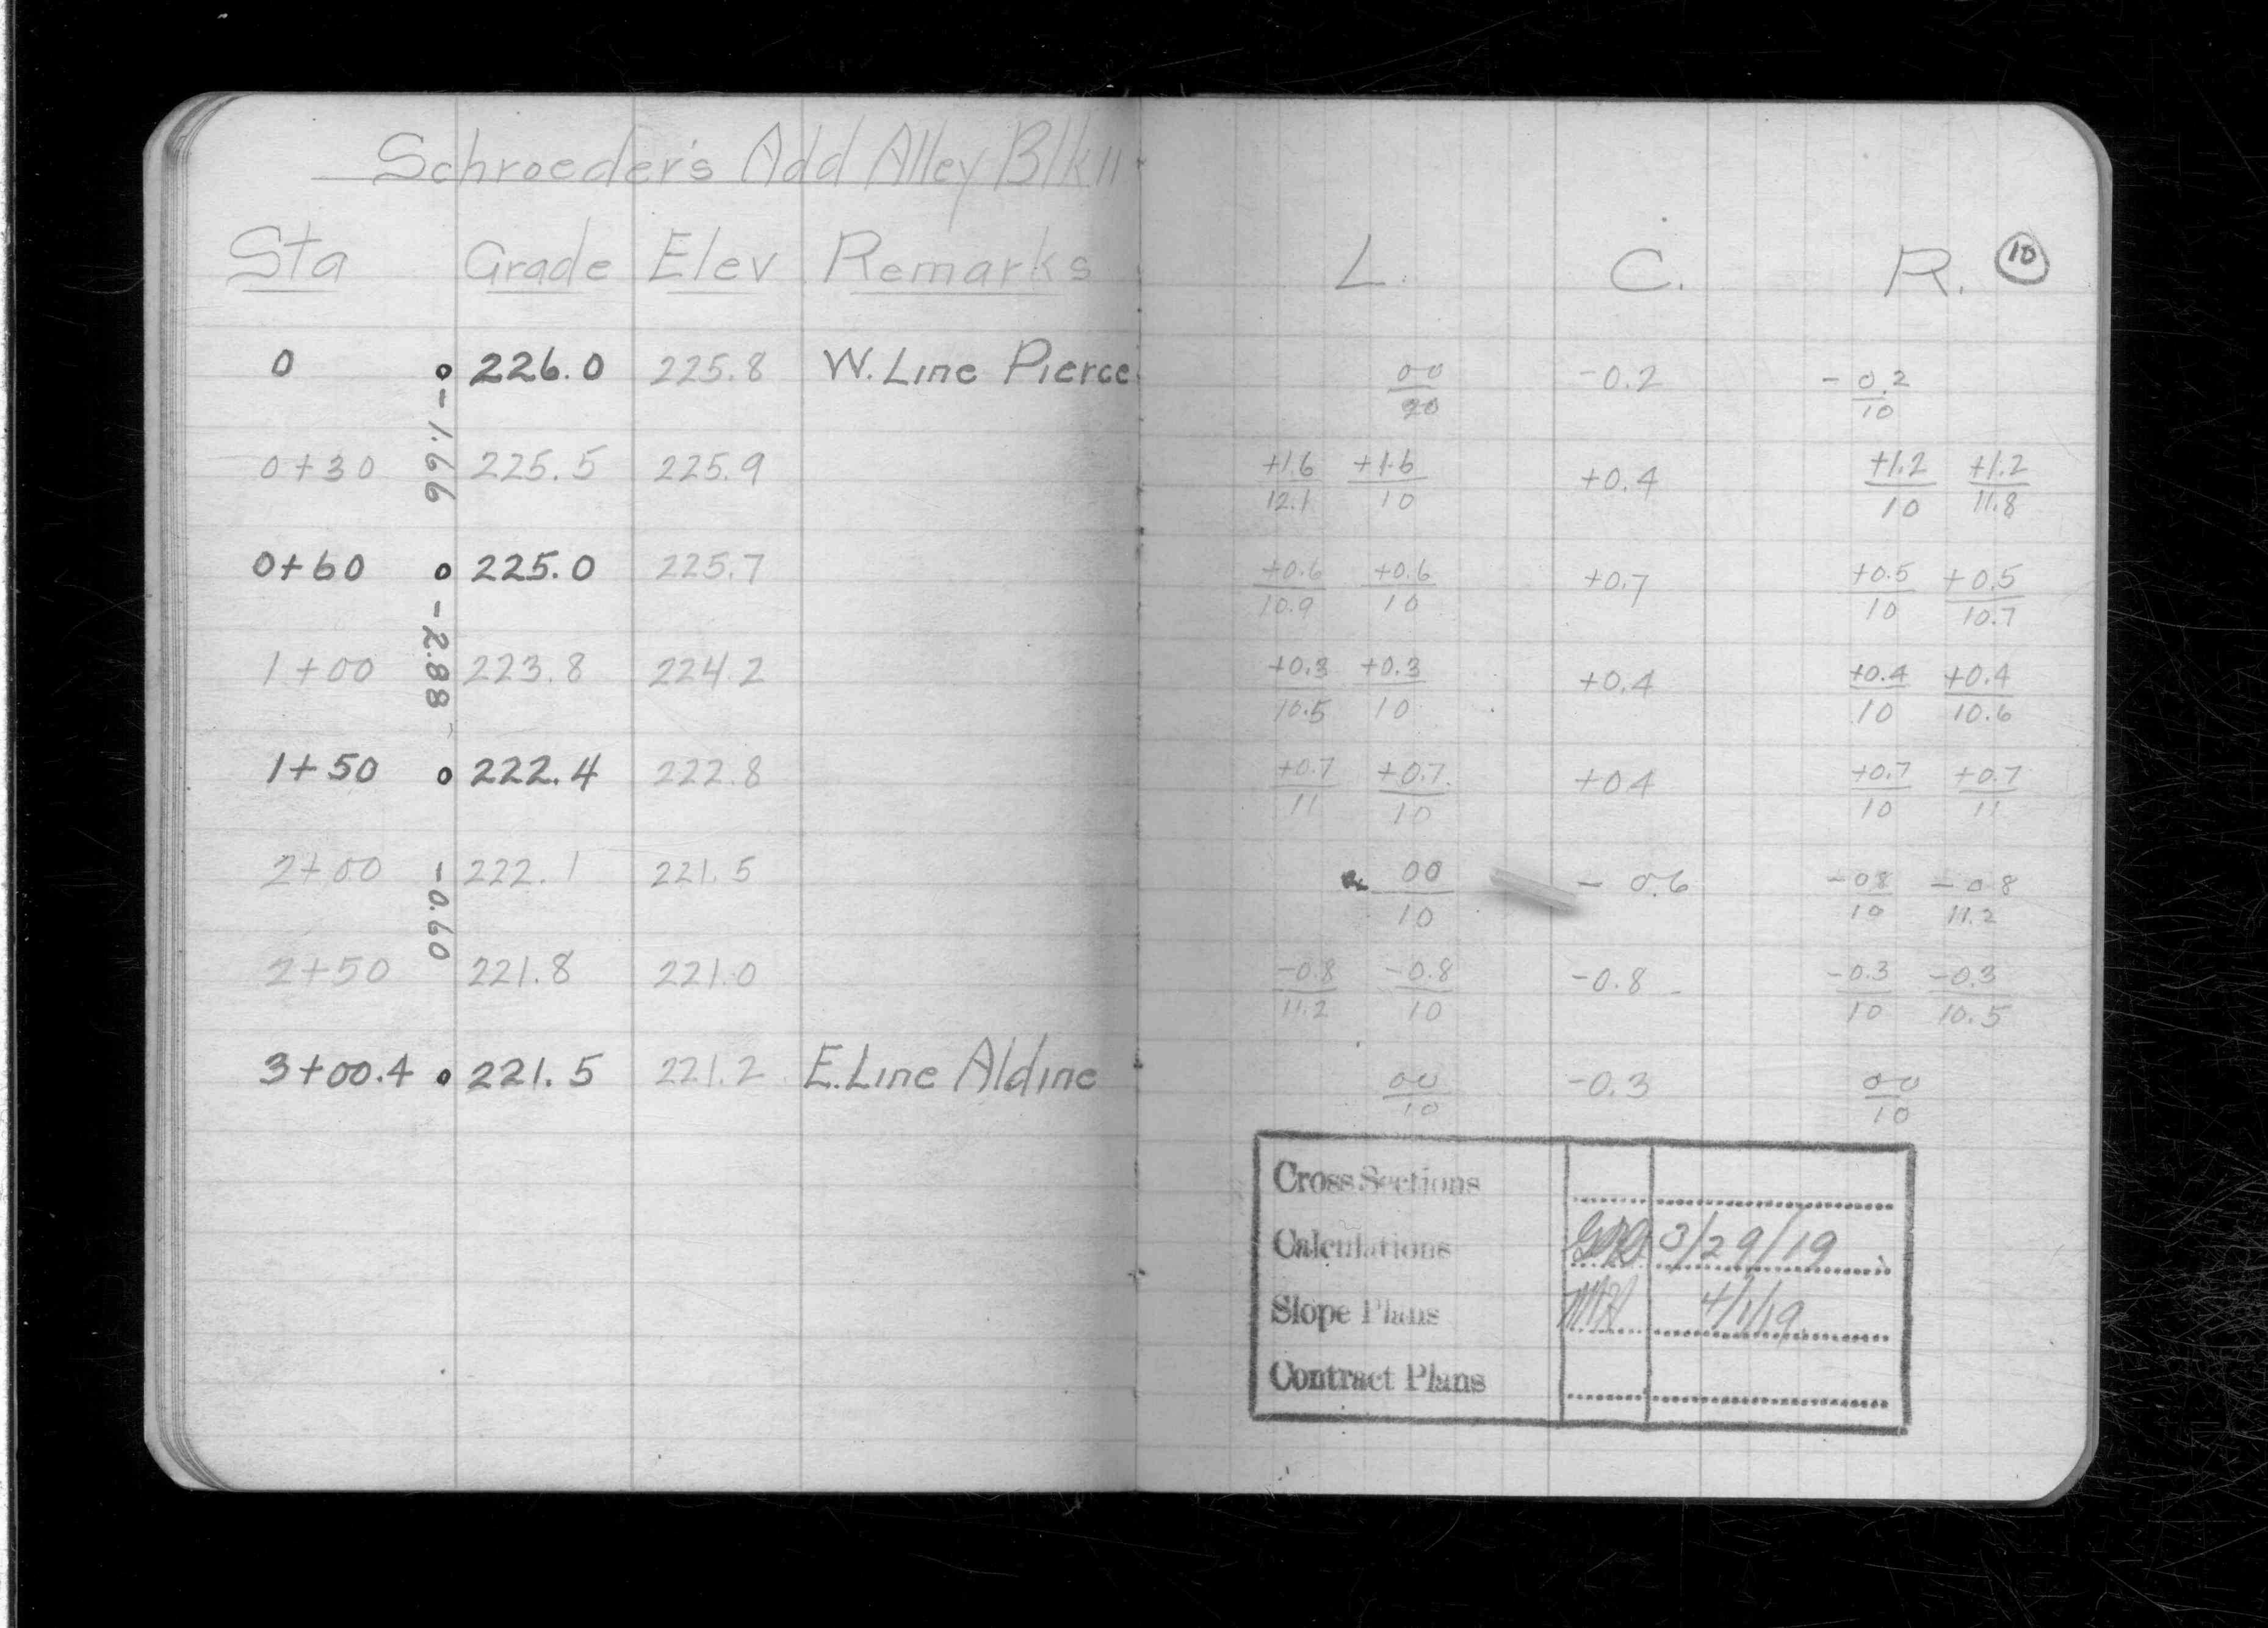 Schroeder's Add Alley Blk 11
Sta Grade Elev Remarks
0 o 226.0 225.8 W. Line Pierce
-1.66
0+30 225.5 225.9
0+60 o 225.0 225.7
-2.88
1+00 223.8 224.2
1+50 o 222.4 222.8
2+00 222.1 221.5
-0.60
2+50 221.8 221.0
3+00.4 o 221.5 221.2 E. Line Aldine
L. C. R. 10
00/20 -0.2 -0.2/10
+1.6/12.1 +1.6/10 +0.4 +1.2/10 +1.2/11.8
+0.6/10.9 +0.6/10 +0.7 +0.5/10 +0.5/10.7
+0.3/10.5 +0.3/10 +0.4 +0.4/10 +0.4/10.6
+0.7/11 +0.7/10 +04 +0.7/10 +0.7/11
00/10 -0.6 -08/10 -08/11.2
-0.8/11.2 -0.8/10 -0.8 -0.3/10 -0.3/10.5
00/10 -0.3 00/10
Cross Sections
Calculations 3/29/19
Slope Plans 4/1/19
Contract Plans